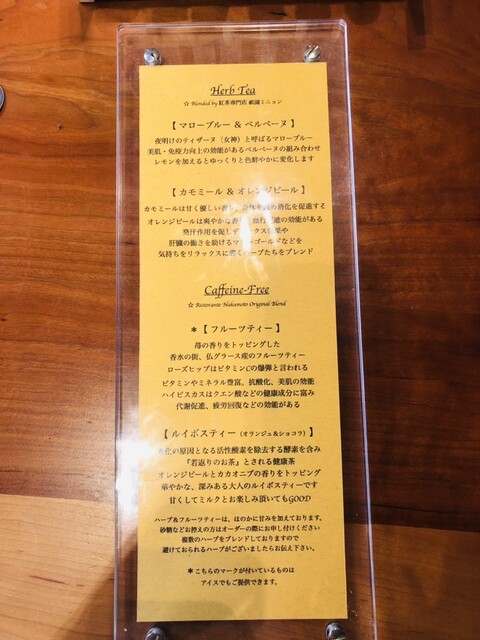 Herb Tea
☆ Blended by 紅茶専門店 祇園ミニョン
【 マローブルー & ベルベーヌ 】
夜明けのティザーヌ（女神）と呼ばるマローブルー
美肌・免疫力向上の効能があるベルベーヌの組み合わせ
レモンを加えるとゆっくりと色鮮やかに変化します
【 カモミール & オレンジピール 】
カモミールは甘く優しい香り、め消化を促進する
オレンジピールは爽やかな香り、血行促進の効能がある
発汗作用を促しデトックス効果や
肝臓の働きを助けるマリーゴールドなどを
気持ちをリラックスに導くハーブたちをブレンド
Caffeine-Free
☆ Ristorante Nakamoto Original Blend
＊【 フルーツティー 】
苺の香りをトッピングした
香水の街、仏グラース産のフルーツティー
ローズヒップはビタミンCの爆弾と言われる
ビタミンやミネラル豊富、抗酸化、美肌の効能
ハイビスカスはクエン酸などの健康成分に富み
代謝促進、疲労回復などの効能がある
【 ルイボスティー （オランジュ&ショコラ）】
老化の原因となる活性酸素を除去する酵素を含み
『若返りのお茶』とされる健康茶
オレンジピールとカカオニブの香りをトッピング
華やかな、深みある大人のルイボスティーです
甘くしてミルクとお楽しみ頂いてもGOOD
ハーブ&フルーツティーは、ほのかに甘みを加えております。
砂糖などお控えの方はオーダーの際にお申し付けください
複数のハーブをブレンドしておりますので
避けておられるハーブがございましたらお伝え下さい。
＊こちらのマークが付いているものは
アイスでもご提供できます。